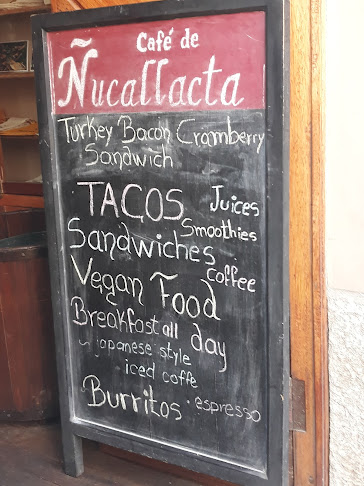 Café de
Ñucallacta
Turkey Bacon Cramberry
Sandwich
TACOS Juices
Smoothies
Sandwiches
Coffee
Vegan Food
Breakfast all day
Japanese style
iced coffe
Burritos · espresso